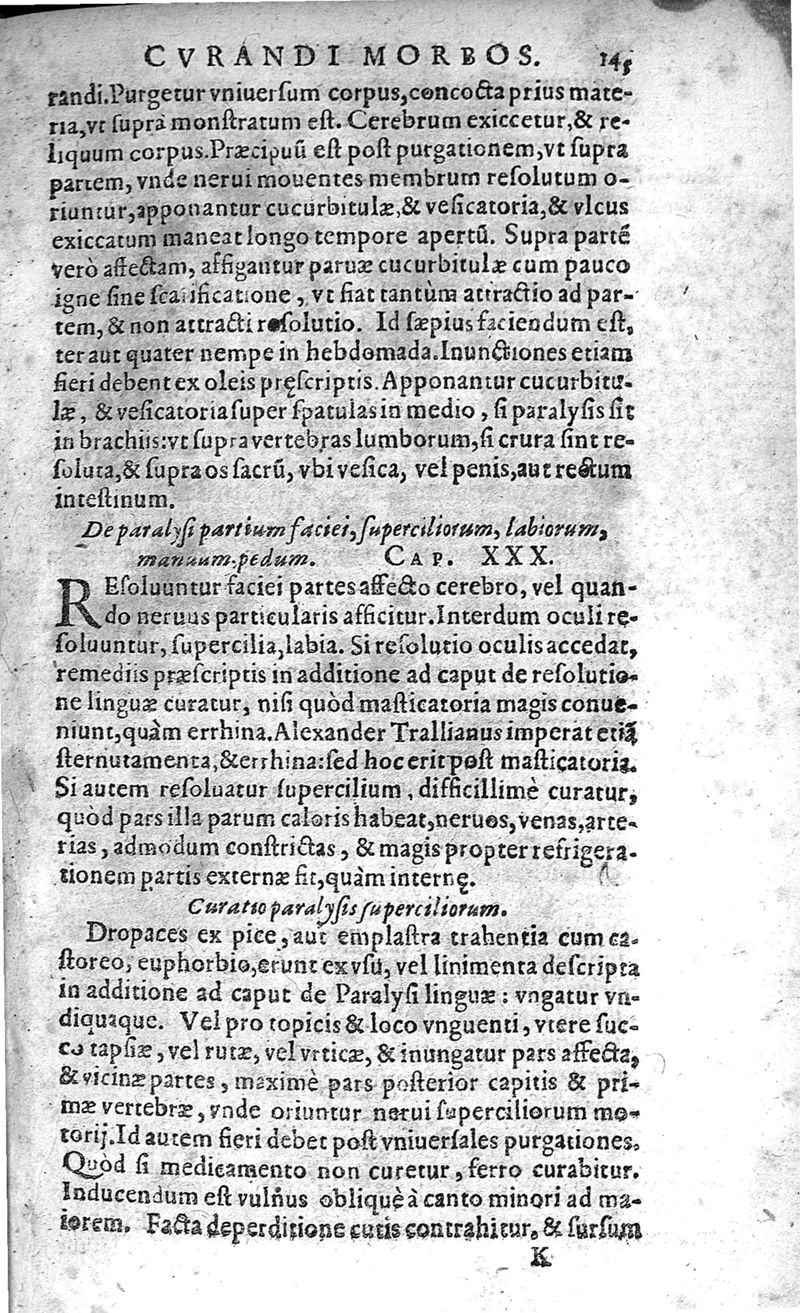 CVRANDI MORBOS. 145
randi.Purgetur vniuersum corpus,concocta prius mate-
ria,vt suprà monstratum est. Cerebrum exiccetur,& re-
liquum corpus.Præcipuũ est post purgationem,vt supra
partem, vnde nerui mouentes membrum resolutum o-
riuntur,apponantur cucurbitulæ,& vesicatoria,& vlcus
exiccatum maneat longo tempore apertũ. Supra partẽ
verò affectam, affigantur paruæ cucurbitulæ cum pauco
igne sine scarificatione, vt fiat tantùm attractio ad par-
tem, & non attracti resolutio. Id sæpius faciendum est,
ter aut quater nempe in hebdomada.Inunctiones etiam
fieri debent ex oleis pręscriptis. Apponantur cucurbitu-
læ, & vesicatoria super spatulas in medio, si paralysis sit
in brachiis:vt supra vertebras lumborum, si crura sint re-
soluta,& supra os sacrũ, vbi vesica, vel penis,aut rectum
intestinum.
De paralysi partium faciei, superciliorum, labiorum,
manuum.pedum. CAP. XXX.
REsoluuntur faciei partes affecto cerebro, vel quan-
do neruus particularis afficitur.Interdum oculi rę-
soluuntur, supercilia,labia. Si resolutio oculis accedat,
remediis præscriptis in additione ad caput de resolutio-
ne linguæ curatur, nisi quòd masticatoria magis conue-
niunt,quàm errhina.Alexander Trallianus imperat etiã
sternutamenta,&errhina:sed hoc erit post masticatoria.
Si autem resoluatur supercilium, difficillimè curatur,
quòd pars illa parum caloris habeat,neruos, venas,arte-
rias, admodum constrictas, & magis propter refrigera-
tionem partis externæ fit,quàm internę.
Curatio paralysis superciliorum.
Dropaces ex pice, aut emplastra trahentia cum ca-
storeo, euphorbio,erunt ex vsu, vel linimenta descripta
in additione ad caput de Paralysi linguæ: vngatur vn-
diquaque. Vel pro topicis & loco vnguenti, vtere suc-
co tapsiæ, vel rutæ, vel vrticæ, & inungatur pars affecta,
& vicinæ partes, maximè pars posterior capitis & pri-
mæ vertebræ, vnde oriuntur nerui superciliorum mo-
torij.Id autem fieri debet post vniuersales purgationes.
Quòd si medicamento non curetur, ferro curabitur.
Inducendum est vulnus obliquè à canto minori ad ma-
iorem. Facta deperditione cutis contrahitur, & sursum
K